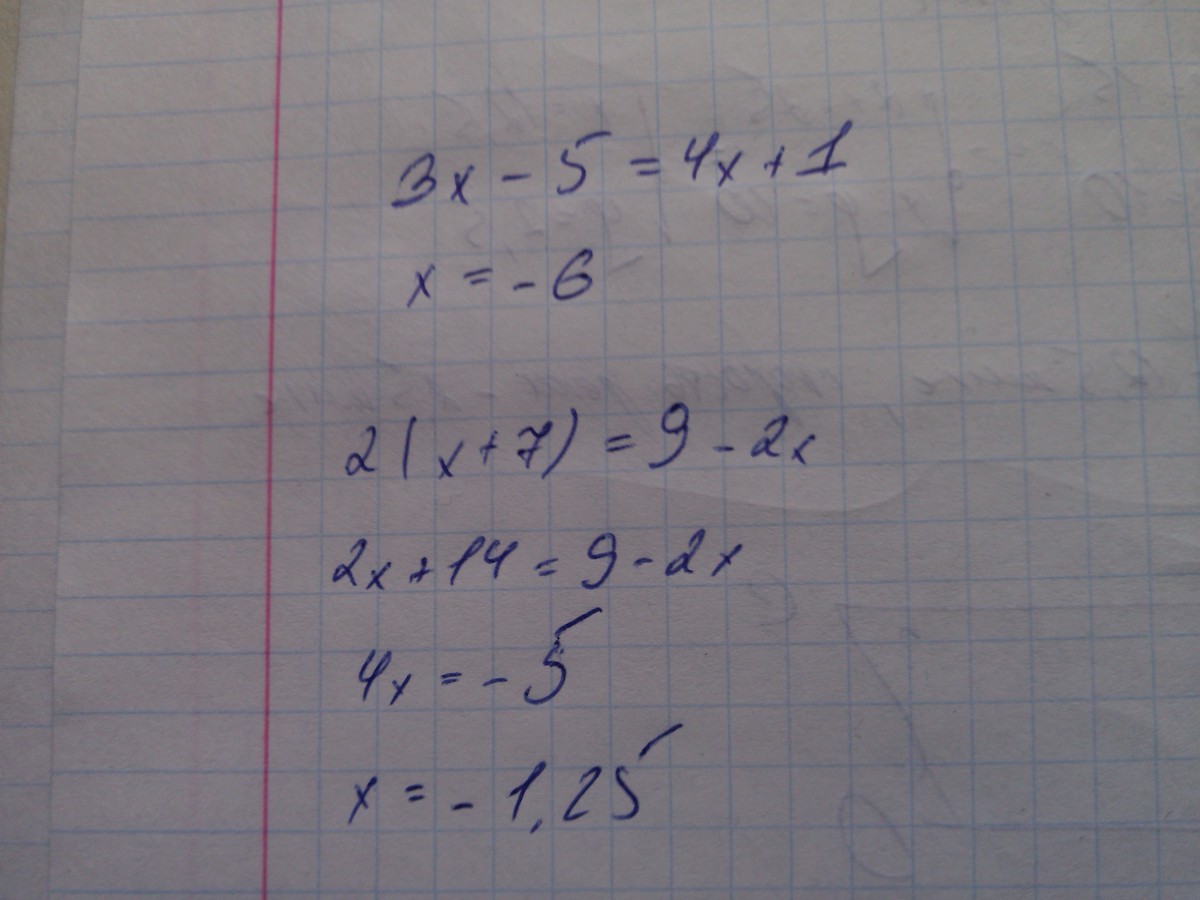 3x - 5 = 4x + 1
x = - 6
2(x+7) = 9 - 2x
2x + 14 = 9 - 2x
4x = - 5
x = - 1,25